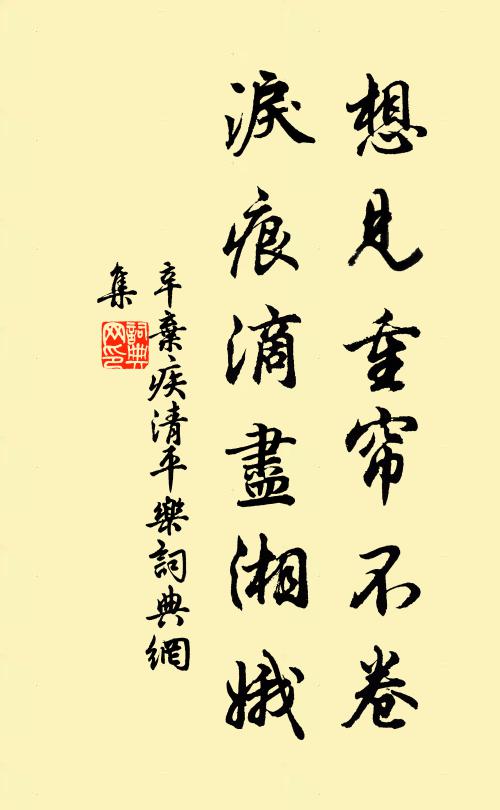 想見重帘不卷
淚痕滴盡湘娥
辛棄疾清平樂詞典網
集
詞典
網印